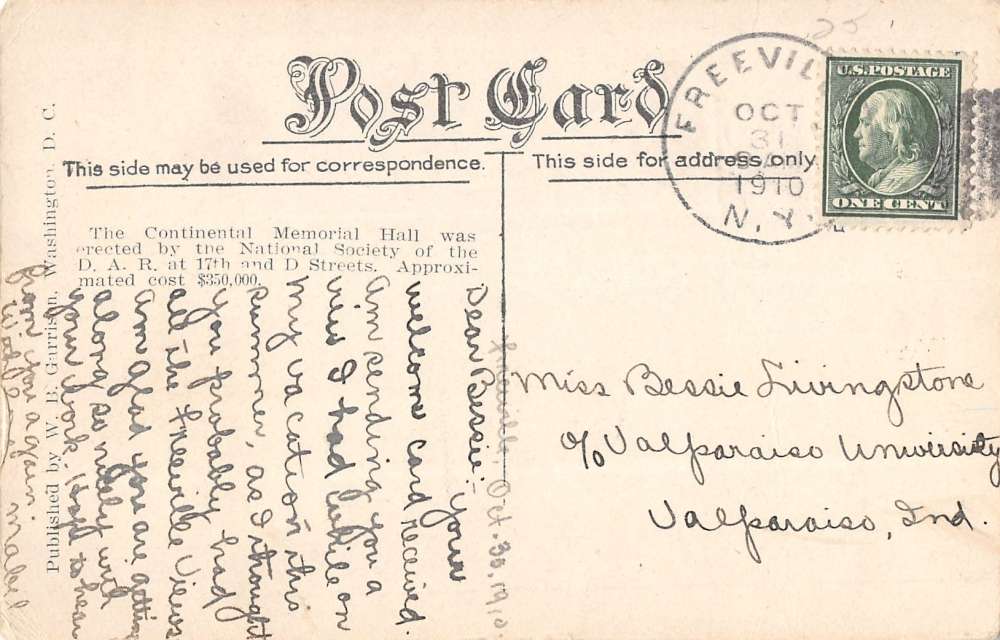 25
Post Card
This side may be used for correspondence.
This side for address only.
FREEVIL
OCT
31
1910
N.Y.
U.S.POSTAGE
ONE CENT
The Continental Memorial Hall was
erected by the National Society of the
D. A. R. at 17th and D Streets. Approxi-
mated cost $350,000.
Published by W. B. Garrison, Washington, D. C.
Freeville, Oct. 30, 1910.
Dear Bessie:- Your
welcome card received.
Am sending you a
view I had while on
my vacation this
summer, as I thought
you probably had
all the Freeville Views
Am glad you are getting
along so nicely with
your work. Hope to hear
from you again.
With Mabel
Miss Bessie Livingstone
c/o Valparaiso University
Valparaiso, Ind.